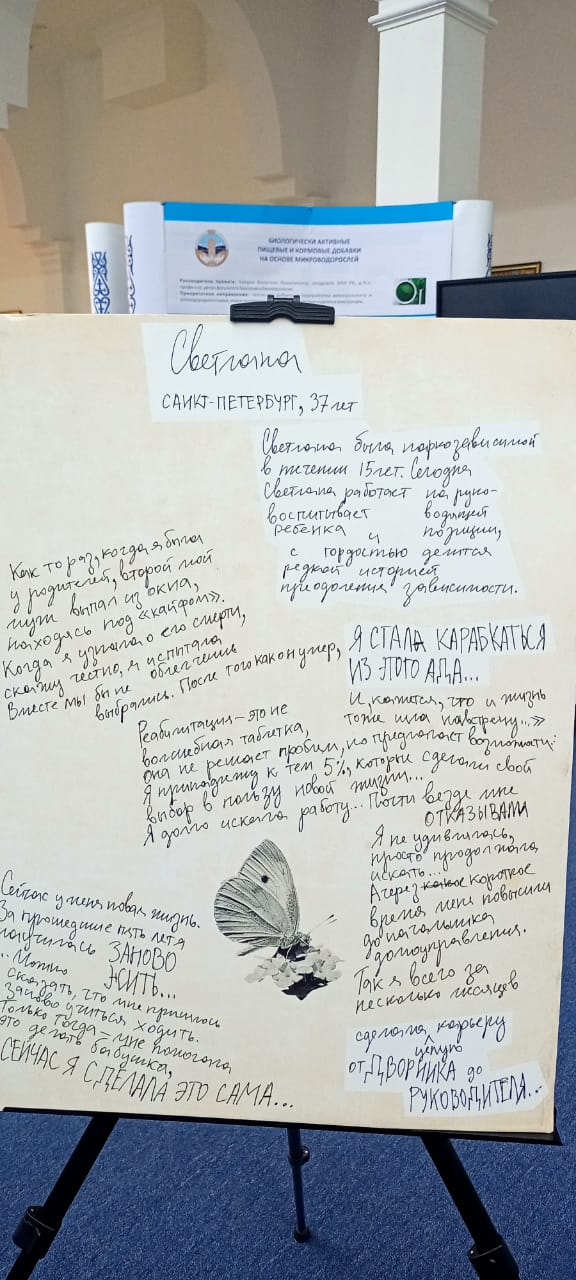 БИОЛОГИЧЕСКИ АКТИВНЫЕ
ПИЩЕВЫЕ И КОРМОВЫЕ ДОБАВКИ
НА ОСНОВЕ МИКРОВОДОРОСЛЕЙ
Светлана
САНКТ-ПЕТЕРБУРГ, 37 лет
Светлана была наркозависимой
в течении 15 лет. Сегодня
Светлана работает на руко-
воспитывает водящей
ребенка и позиции,
с гордостью делится
редкой историей
преодоления зависимости.
Как то раз, когда я была
у родителей, второй мой
муж выпал из окна,
находясь под «кайфом».
Когда я узнала о его смерти,
скажу честно, я испытала
облегчение
Вместе мы бы не выбрались. После того как он умер,
Я СТАЛА КАРАБКАТЬСЯ
ИЗ ЭТОГО АДА...
И, кажется, что и жизнь
тоже шла навстречу...»
Реабилитация – это не
волшебная таблетка,
она не решает проблем, но предлагает возможности:
Я принадлежу к тем 5%, которые сделали свой
выбор в пользу новой жизни...
Я долго искала работу... Почти везде мне
ОТКАЗЫВАЛИ
Я не удивилась,
просто продолжала
искать...
А через короткое
время меня повысили
до начальника
домоуправления.
Так я всего за
несколько месяцев
сделала карьеру
целую
от ДВОРНИКА до
РУКОВОДИТЕЛЯ...
Сейчас у меня новая жизнь.
За прошедшие пять лет я
научилась ЗАНОВО
ЖИТЬ...
... Можно
сказать, что мне пришлось
заново учиться ходить.
Только тогда – мне помогала
это делать бабушка,
СЕЙЧАС Я СДЕЛАЛА ЭТО САМА...